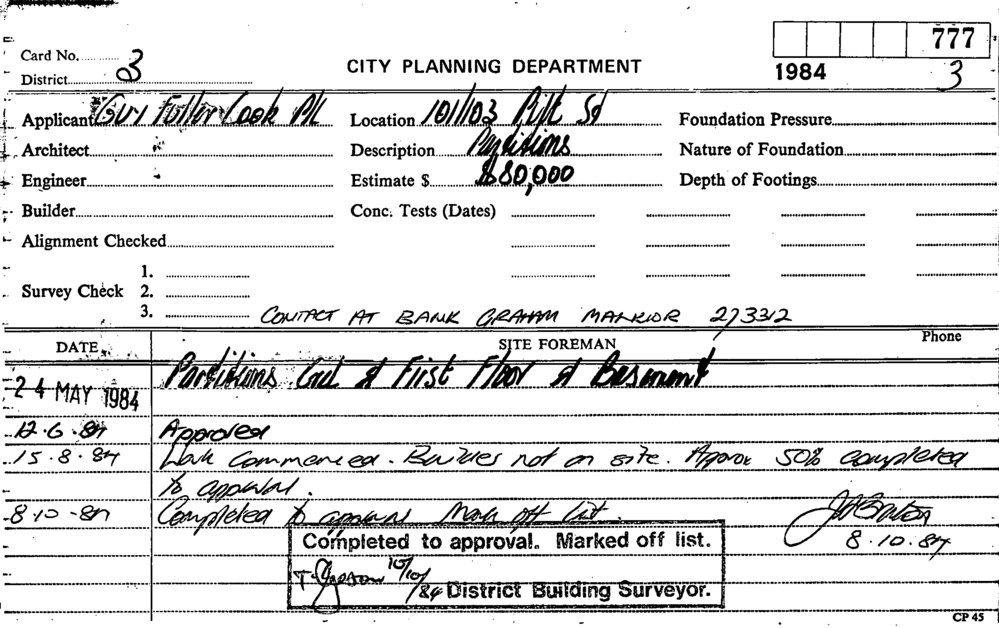 777
Card No. 3
District
CITY PLANNING DEPARTMENT
1984 3
Applicant Guy Fuller Cook P/L Location 101/103 Pitt St Foundation Pressure
Architect Description Partitions Nature of Foundation
Engineer Estimate $ $80,000 Depth of Footings
Builder Conc. Tests (Dates)
Alignment Checked
1.
Survey Check 2.
3. CONTACT AT BANK GRAHAM 273312
DATE SITE FOREMAN Phone
24 MAY 1984 Partitions Gnd & First Floor & Basement
12.6.84 Approved
15.8.84 Work commenced. Builder not on site. Approx 50% completed
to approval.
8.10.84 Completed to approval Mark off list.
8.10.84
Completed to approval. Marked off list.
10/10/84 District Building Surveyor.
CP 45